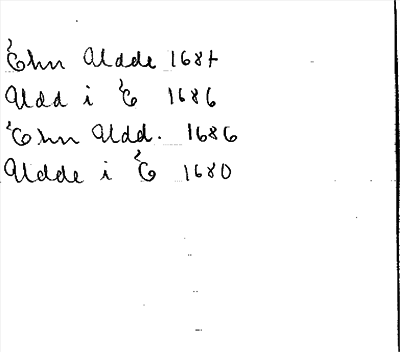 Ehn Udde 1687
Udd i E 1686
Ehn Udd. 1686
Udde i E 1680